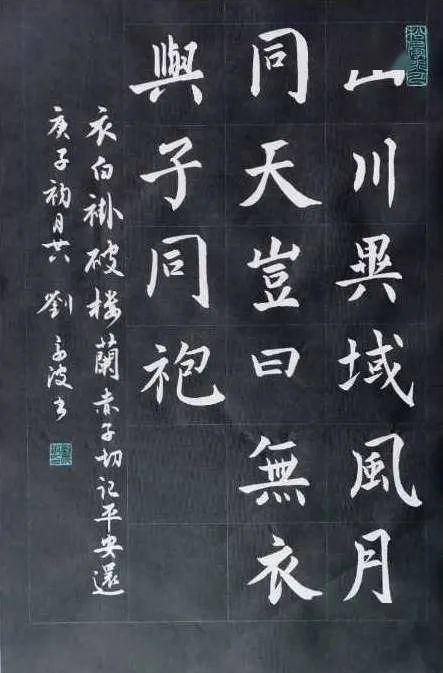 山川異域風月
同天豈曰無衣
與子同袍
衣白褂破楼蘭赤子切记平安還
庚子初月 劉 波书